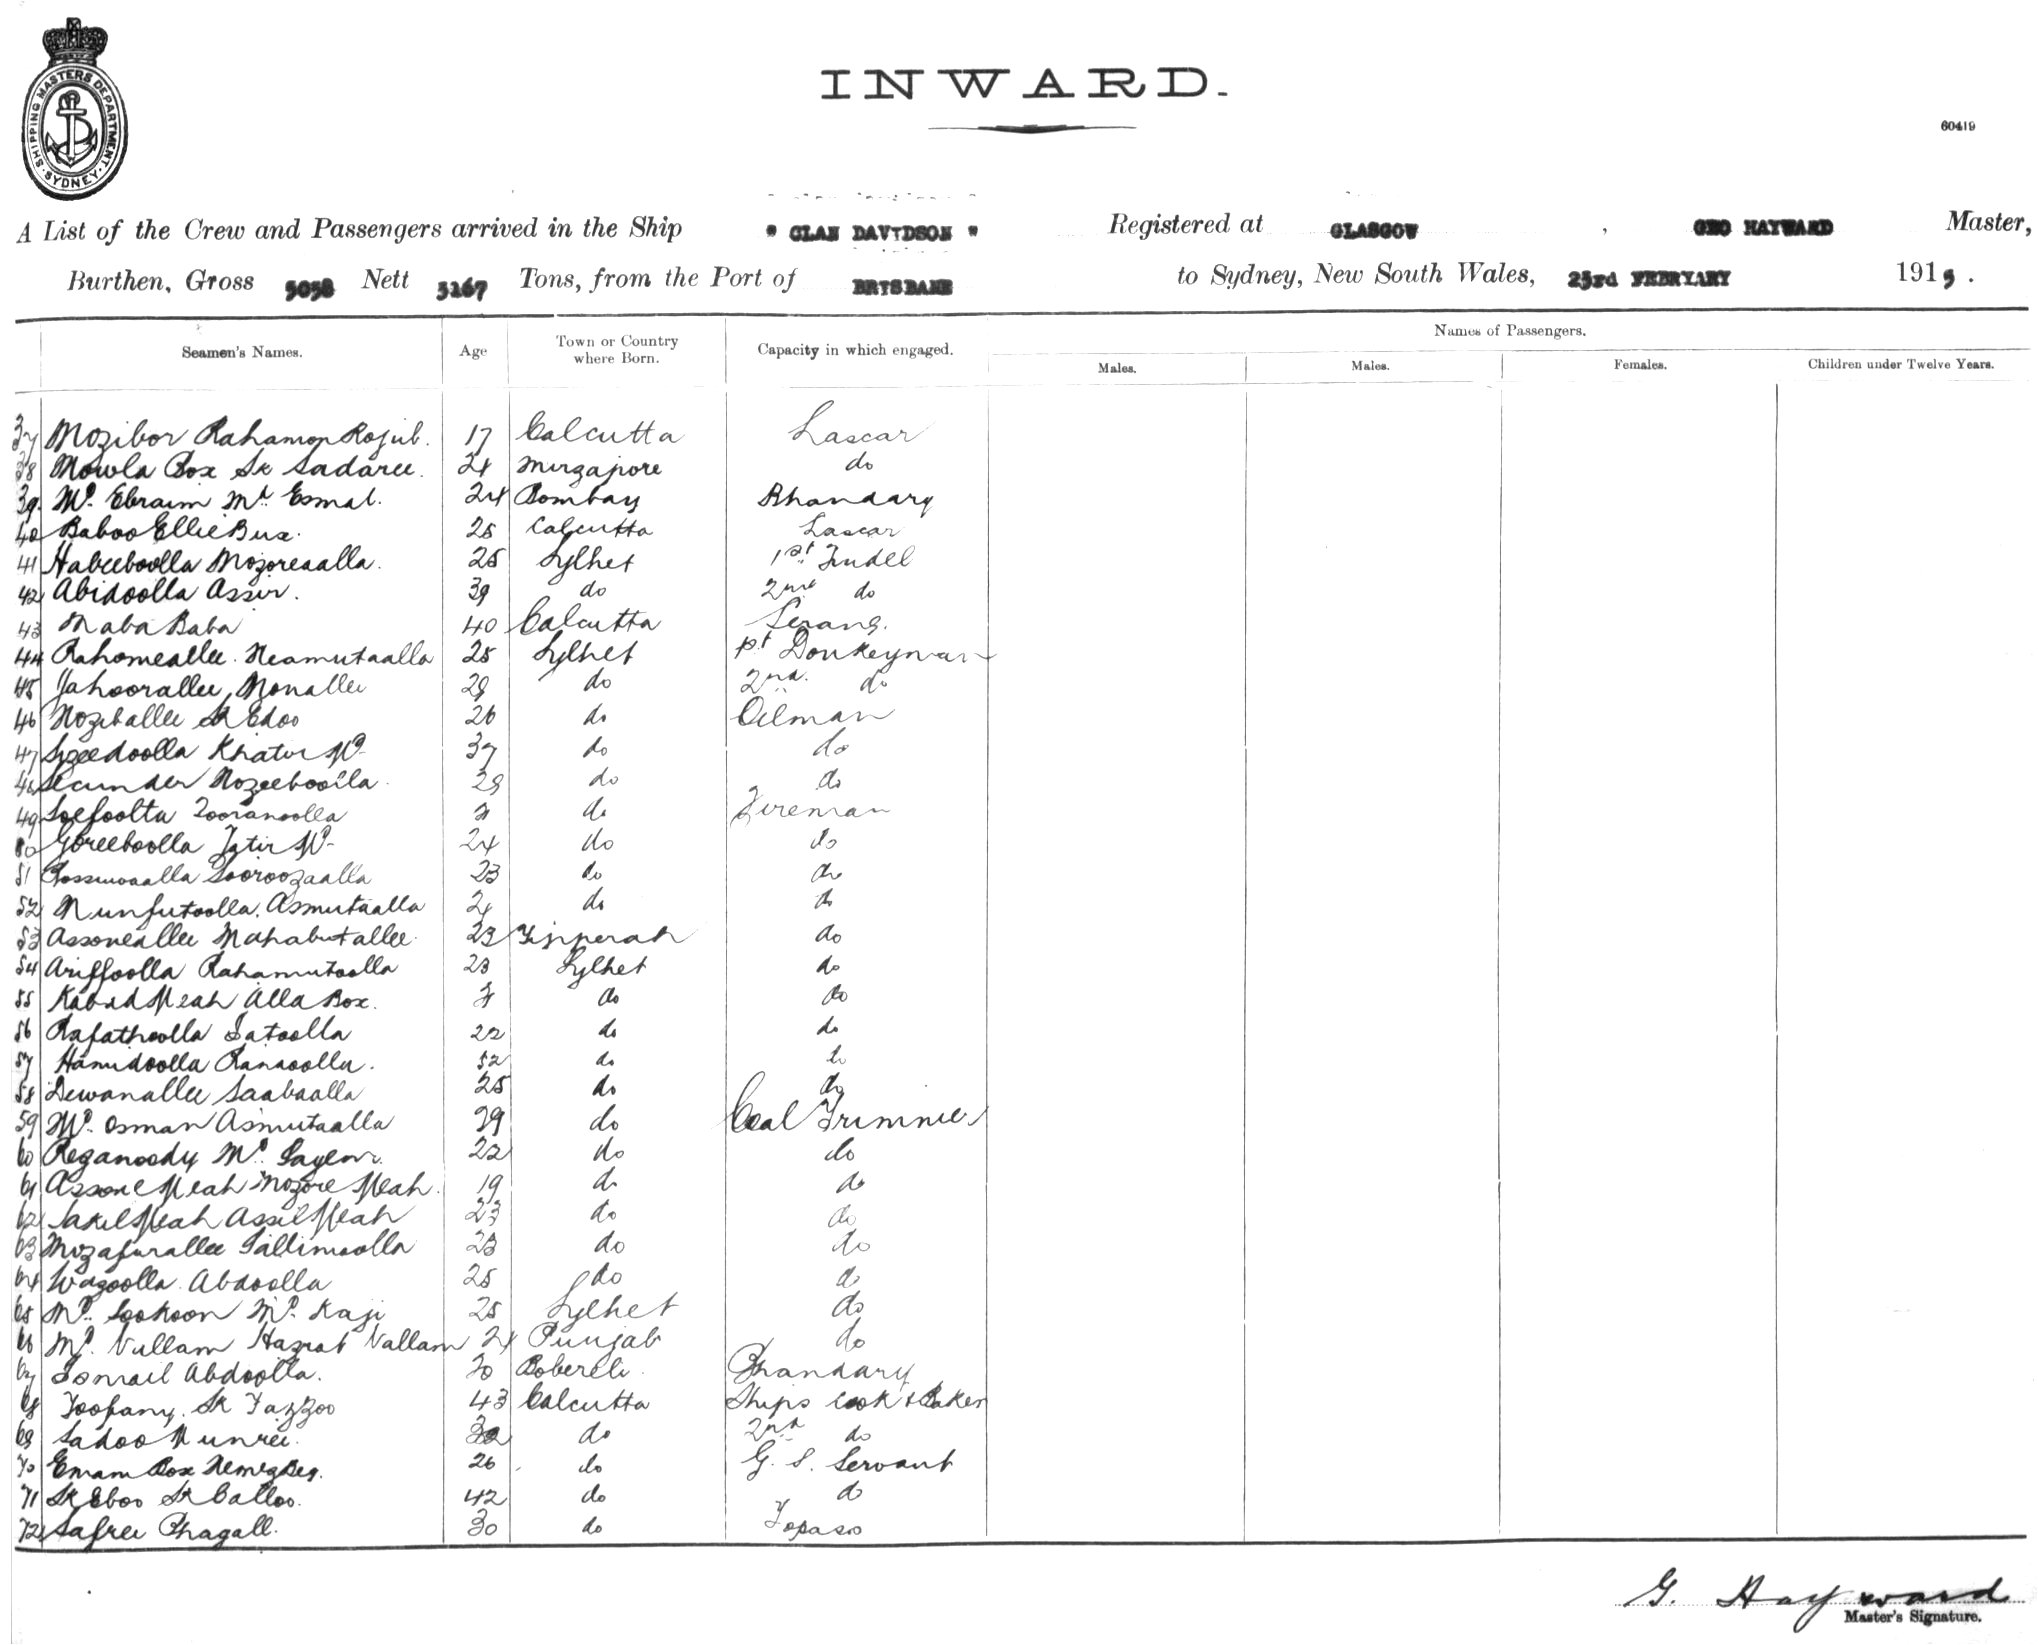 SHIPPING MASTERS DEPARTMENT
SYDNEY
INWARD.
60419
A List of the Crew and Passengers arrived in the Ship " CLAN DAVIDSON " Registered at GLASGOW , GEO HAYWARD Master,
Burthen, Gross 5058 Nett 3167 Tons, from the Port of BRISBANE to Sydney, New South Wales, 23rd FEBRYARY 1915.
Seamen's Names. Age Town or Country where Born. Capacity in which engaged. Names of Passengers.
Males. Males. Females. Children under Twelve Years.
37 Mozibor Rahamon Rojub. 17 Calcutta Lascar
38 Mowla Box Sk Sadaree. 24 Mirzapore do
39 Md. Ebraim Md. Esmal. 24 Bombay Bhandary
40 Baboo Ellie Bux. 25 Calcutta Lascar
41 Habeeboolla Mozoreaalla. 25 Sylhet 1st Tindel
42 Abidoolla Assir. 39 do 2nd do
43 Naba Baba 40 Calcutta Serang.
44 Rahomeallee. Neamutaalla 25 Sylhet 1st Donkeyman
45 Jahoorallee Monallee 29 do 2nd. do
46 Noziballee Sk Edoo 26 do Oilman
47 Syzeedoolla Khatir Md 37 do do
48 Secunder Nozeeboolla 29 do do
49 Tooranoolla do Fireman
50 Goreeboolla Md 24 do do
51 Sooroozaalla 23 do do
52 Nunfutoolla. Asmutaalla 24 do do
53 Assoneallee Mahabutallee. 23 Tipperah do
54 Ariffoolla Rahamutoolla 23 Sylhet do
55 Meah Alla Box. do do
56 Rafathoolla Satoolla 22 do do
57 Hamidoolla Ranaoolla. 52 do do
58 Dewanallee Saabaalla 25 do do
59 Md. Osman Asmutaalla 39 do Coal Trimmer
60 Reganoody Md. 22 do do
61 Assone Meah Mozore Meah. 19 do do
62 Sakil Meah Assil Meah 23 do do
63 Mozafurallee Sallimoolla 23 do do
64 Wazoolla. Abdoolla 25 do do
65 Md. Sookoon Md. Kaji 25 Sylhet do
66 Md. Vullam Hazrat Vallam 24 Punjab do
67 Ismail Abdoolla. 30 Bhandary
68 Toofany. Sk Fazzoo 43 Calcutta Ships cook & Baker
69 Sadoo Nunree. do 2nd do
70 Emam Box 26 do G. S. Servant
71 Sk Eboo Sk Calloo. 42 do do
72 Safree Bhagall. 30 do Topass
G. Hayward
Master's Signature.